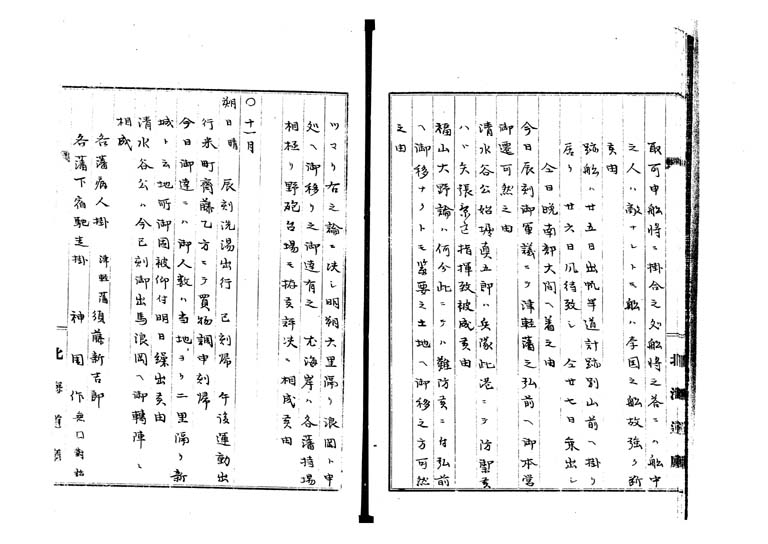 取可申船将ニ掛合之処船将之荅ニハ船中
之人ハ敵ナレトモ船ハ孛国之船故強
亥由
跡船ハ廿五日出帆半途計跡別山前ヘ掛リ
居リ廿六日風待致シ今廿七日乗出シ
今日晩南部大間ヘ着之由
今日辰刻御軍議ニテ津軽藩之弘前ヘ御本営
御遷可然之由
清水谷公始堀真五郎ハ兵隊此港ニテ防禦亥
ハハ矢張繁々指揮致被成亥由
福山大野論ハ何分此ニテハ難防亥ニ付弘前
ヘ御移ナクトモ緊要之土地ヘ御移之方可然
之由
北海道庁
ツマリ右之論ニ決シ明朔六里隔リ浪岡ト申
処ヘ御移リ之御達有之尤海岸ハ各藩持場
相極リ野砲台場モ拵亥評決ニ相成亥由
〇十一月
朔日晴 辰刻洗湯出行巳刻帰午後運動出
行米町斎藤乙方ニテ買物調申刻帰
今日御達ニハ御人数ハ当地ヨリ二里隔リ新
城ト云地所御固被仰付明日繰出亥由
清水谷公ハ今巳刻御出馬浪岡ヘ御転陣ニ
相成
各藩病人掛 津軽藩 須藤新吉郎
各藩下宿馳走掛 神 図作
北海道庁